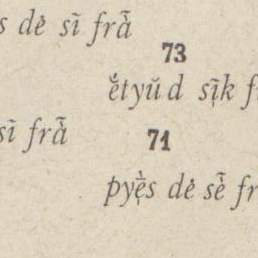 s dė sĩ frã̀
73
ẽ́tyŭd sĩ̩k f
sĩ frã̀
71
pyę̄̀s dė sẽ̀ fr